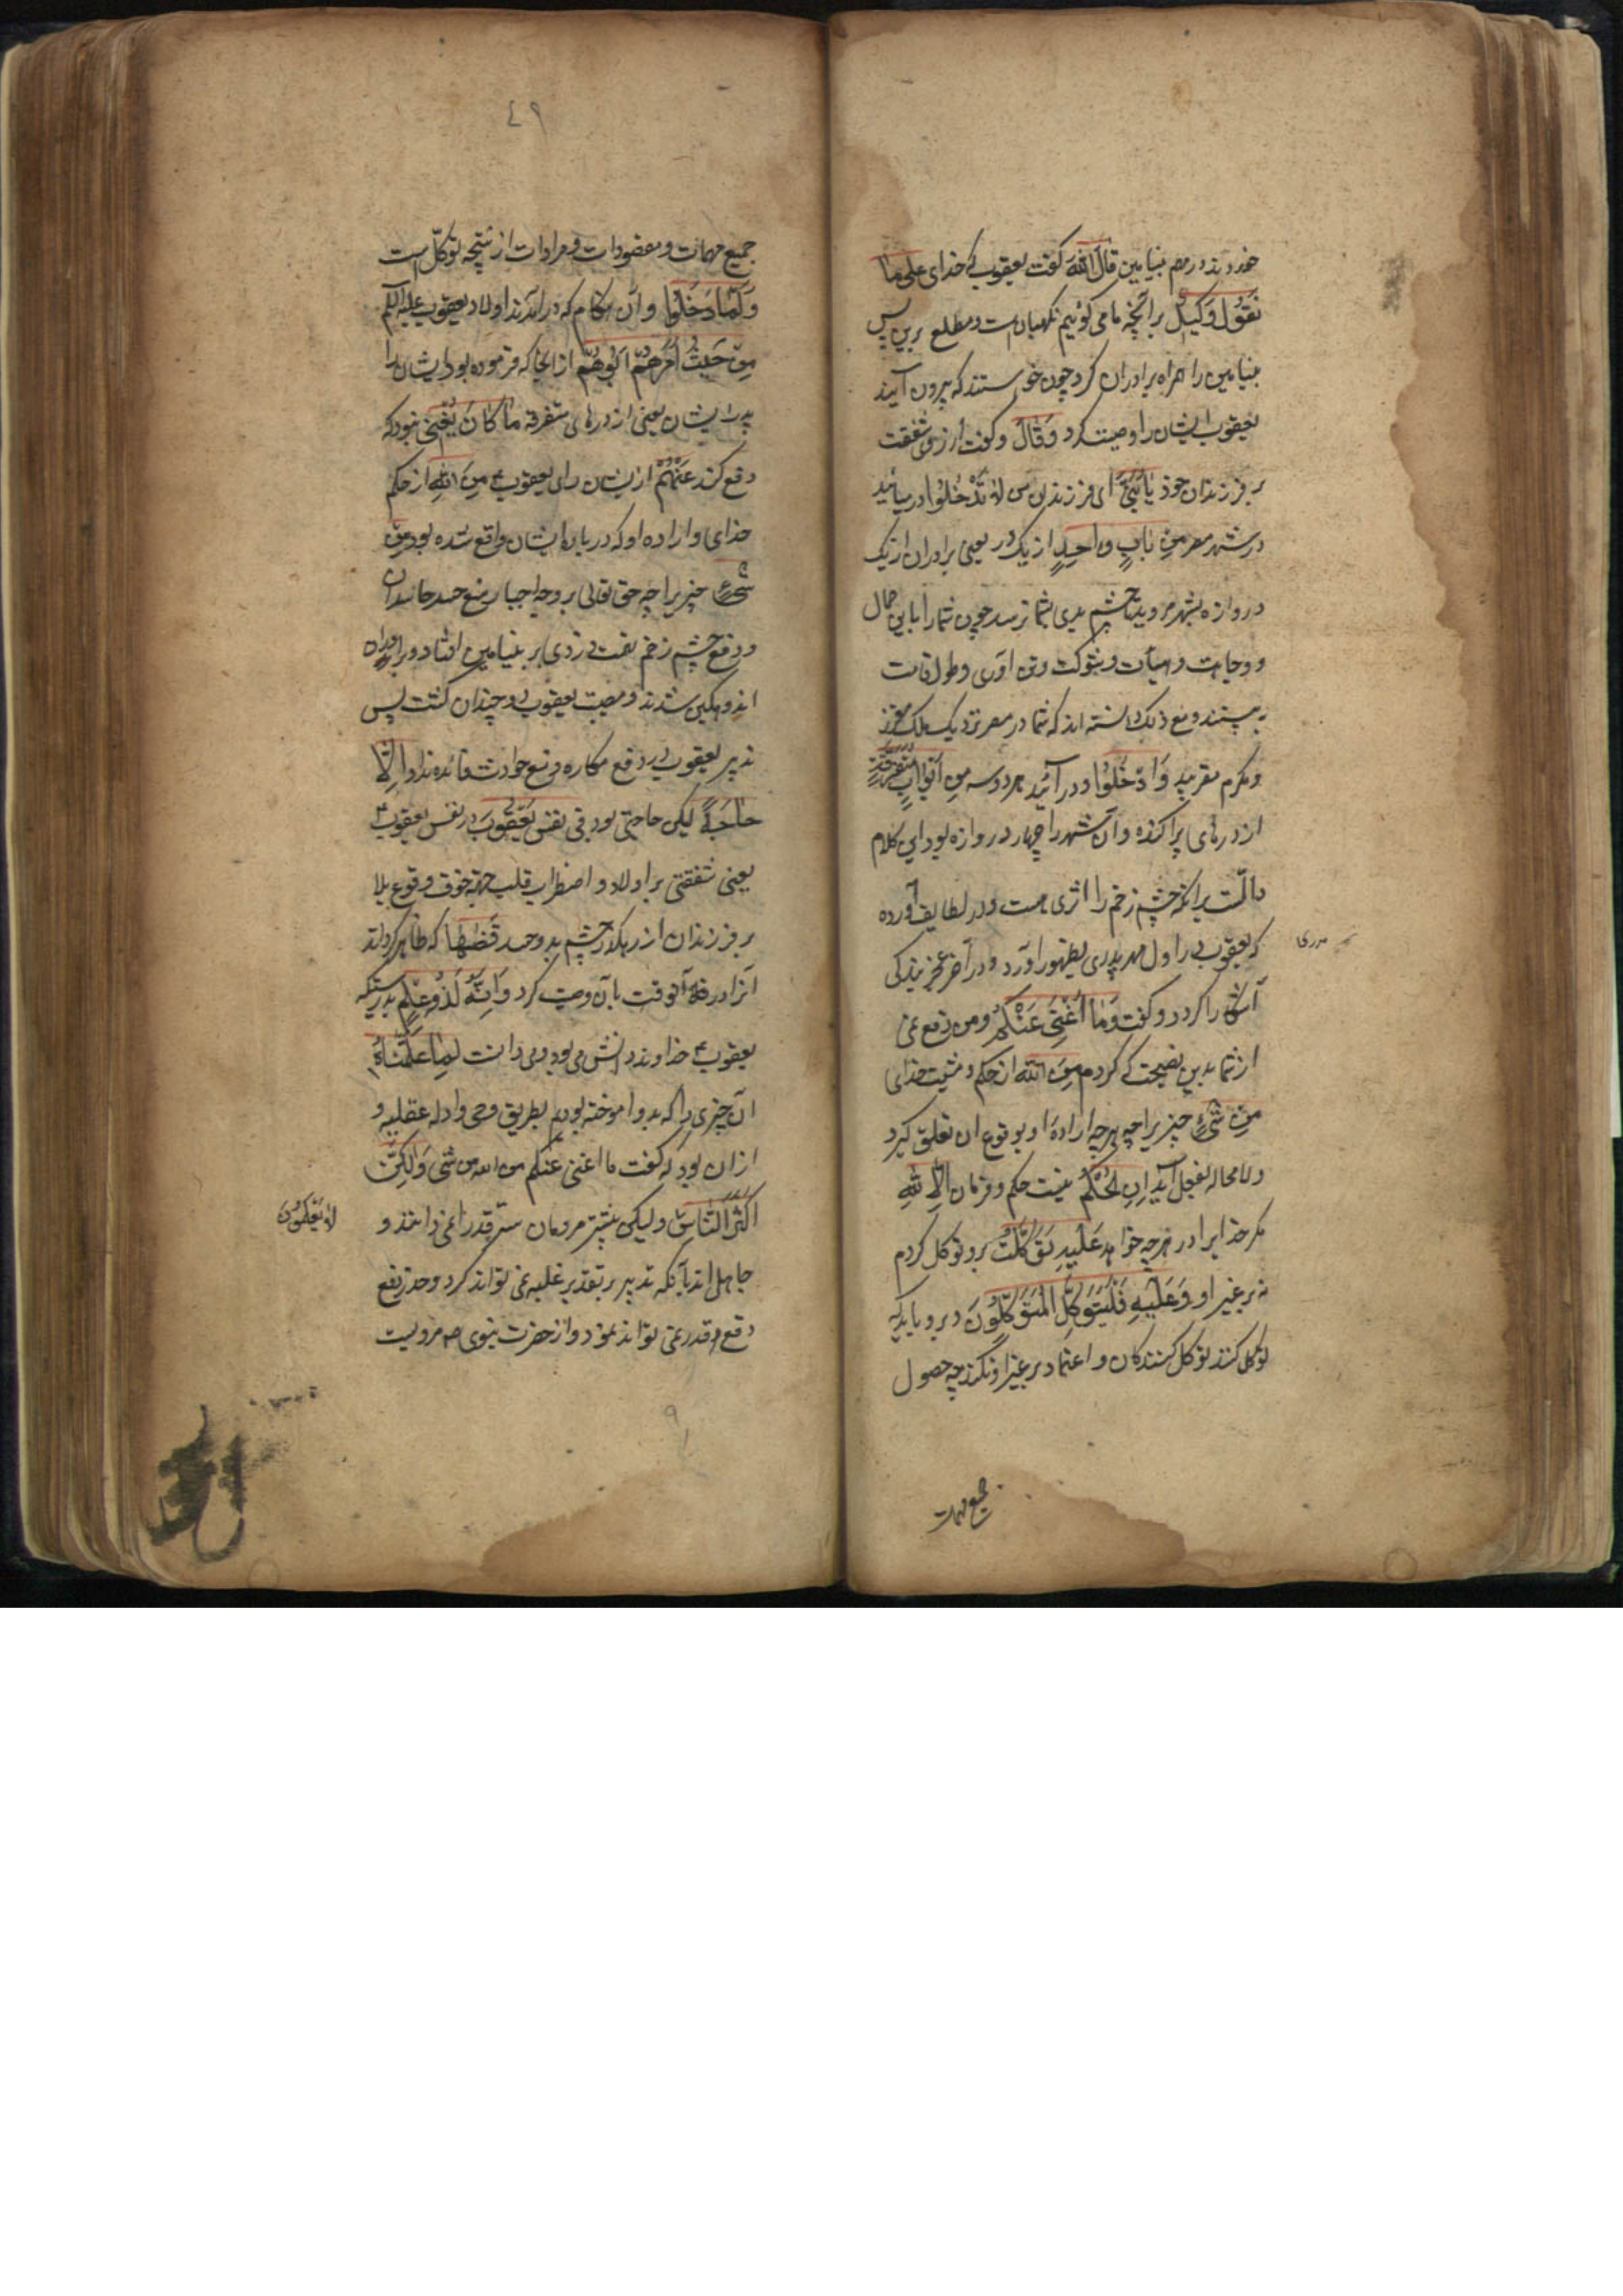 خوردند در مهم بنیامین قَالَ اللّٰهُ گفت یعقوب که خدای عَلیٰ مَا
نَقُولُ وَکِیلٌ بر آنچه ما می گوئیم نگهبان است و مطلع برین پس
بنیامین را همراه برادران کرد چون خواستند که بیرون آیند
یعقوب ایشان را وصیت کرد وَقَالَ و گفت از روی شفقت
بر فرزندان خود یَا بَنِیَّ ای فرزندان من لَا تَدْخُلُوا در میائید
در شهر مصر مِنْ بَابٍ وَاحِدٍ از یک در یعنی برادران از یک
دروازه بشهر مروید تا چشم بدی بشما نرسد چون شما را باین جمال
و وجاهت و هیأت و شوکت و تن آوری و طول قامت
به بینند و مع ذلک دانسته اند که شما در مصر نزدیک ملک معزز
و مکرم مقربید وَادْخُلُوا و در آئید هر دو سه مِنْ اَبْوَابٍ مُتَفَرِّقَةٍ
از درهای پراکنده و آن شهر را چهار دروازه بود این کلام
دالّست برانکه چشم زخم را اثری هست و در لطایف آورده
که یعقوب در اول مهر پدری بظهور آورد و در آخر عجز بندگی
آشکارا کرد و گفت وَمَا اُغْنِی عَنْکُمْ و من دفع نمی
از شما بدین نصیحت که کردم مِنَ اللّٰهِ از حکم و مشیت خدای
مِنْ شَیْءٍ چیزیرا چه هرچه ارادهٔ او بوقوع آن تعلق گیرد
و لامحاله بفعل آید اِنِ الْحُکْمُ نیست حکم و فرمان اِلَّا لِلّٰهِ
مگر خدایرا در هرچه خواهد عَلَیْهِ تَوَکَّلْتُ برو توکل کردم
نه بر غیر او وَعَلَیْهِ فَلْیَتَوَکَّلِ الْمُتَوَکِّلُونَ و برو باید که
توکل کنند توکل کنندگان و اعتماد بر غیر او نکنند چه حصول
جمیع مهمات
٤٩
جمیع مهمات و مقصودات و مرادات از نتیجه توکّل است
وَلَمَّا دَخَلُوا و آن هنگام که در آمدند اولاد یعقوب علیه السلام
مِنْ حَیْثُ اَمَرَهُمْ اَبُوهُمْ از آنجا که فرموده بود ایشان را
پدر ایشان یعنی از درهای متفرقه مَا کَانَ یُغْنِی نبود که
دفع کند عَنْهُمْ از ایشان رای یعقوب مِنَ اللّٰهِ از حکم
خدای و اراده او که در باره ایشان واقع شده بود مِنْ
شَیْءٍ چیزیرا چه حق تعالی بر وجه اجبار منع حسد حاسدان
و دفع چشم زخم تهمت دزدی بر بنیامین افتاد و برادران
اندوهگین شدند و مصیبت یعقوب دو چندان گشت پس
تدبیر یعقوب در دفع مکاره و منع حوادث فائده نداد اِلَّا
حَاجَةً لیکن حاجتی بود فِی نَفْسِ یَعْقُوبَ در نفس یعقوب
یعنی شفقتی بر اولاد و اضطراب قلب جهة خوف وقوع بلا
بر فرزندان از رهگذر چشم بد و حسد قَضٰهَا که ظاهر گرداند
آنرا در آنوقت بآن وصیت کرد وَاِنَّهُ لَذُو عِلْمٍ بدرستیکه
یعقوب خداوند دانش می بود و می دانست لِمَا عَلَّمْنَاهُ
آن چیزی را که بدو آموخته بودیم بطریق وحی و ادله عقلیه و
از آن بود که گفت ما اغنی عنکم من الله من شی وَلٰکِنَّ
اَکْثَرَ النَّاسِ و لیکن بیشتر مردمان سر قدر را نمی دانند و
لَا یَعْلَمُونَ
جاهل اند بآنکه تدبیر بر تقدیر غلبه نمی تواند کرد و حذر نفع
دفع قدر نمی تواند نمود و از حضرت نبوی صم مرویست